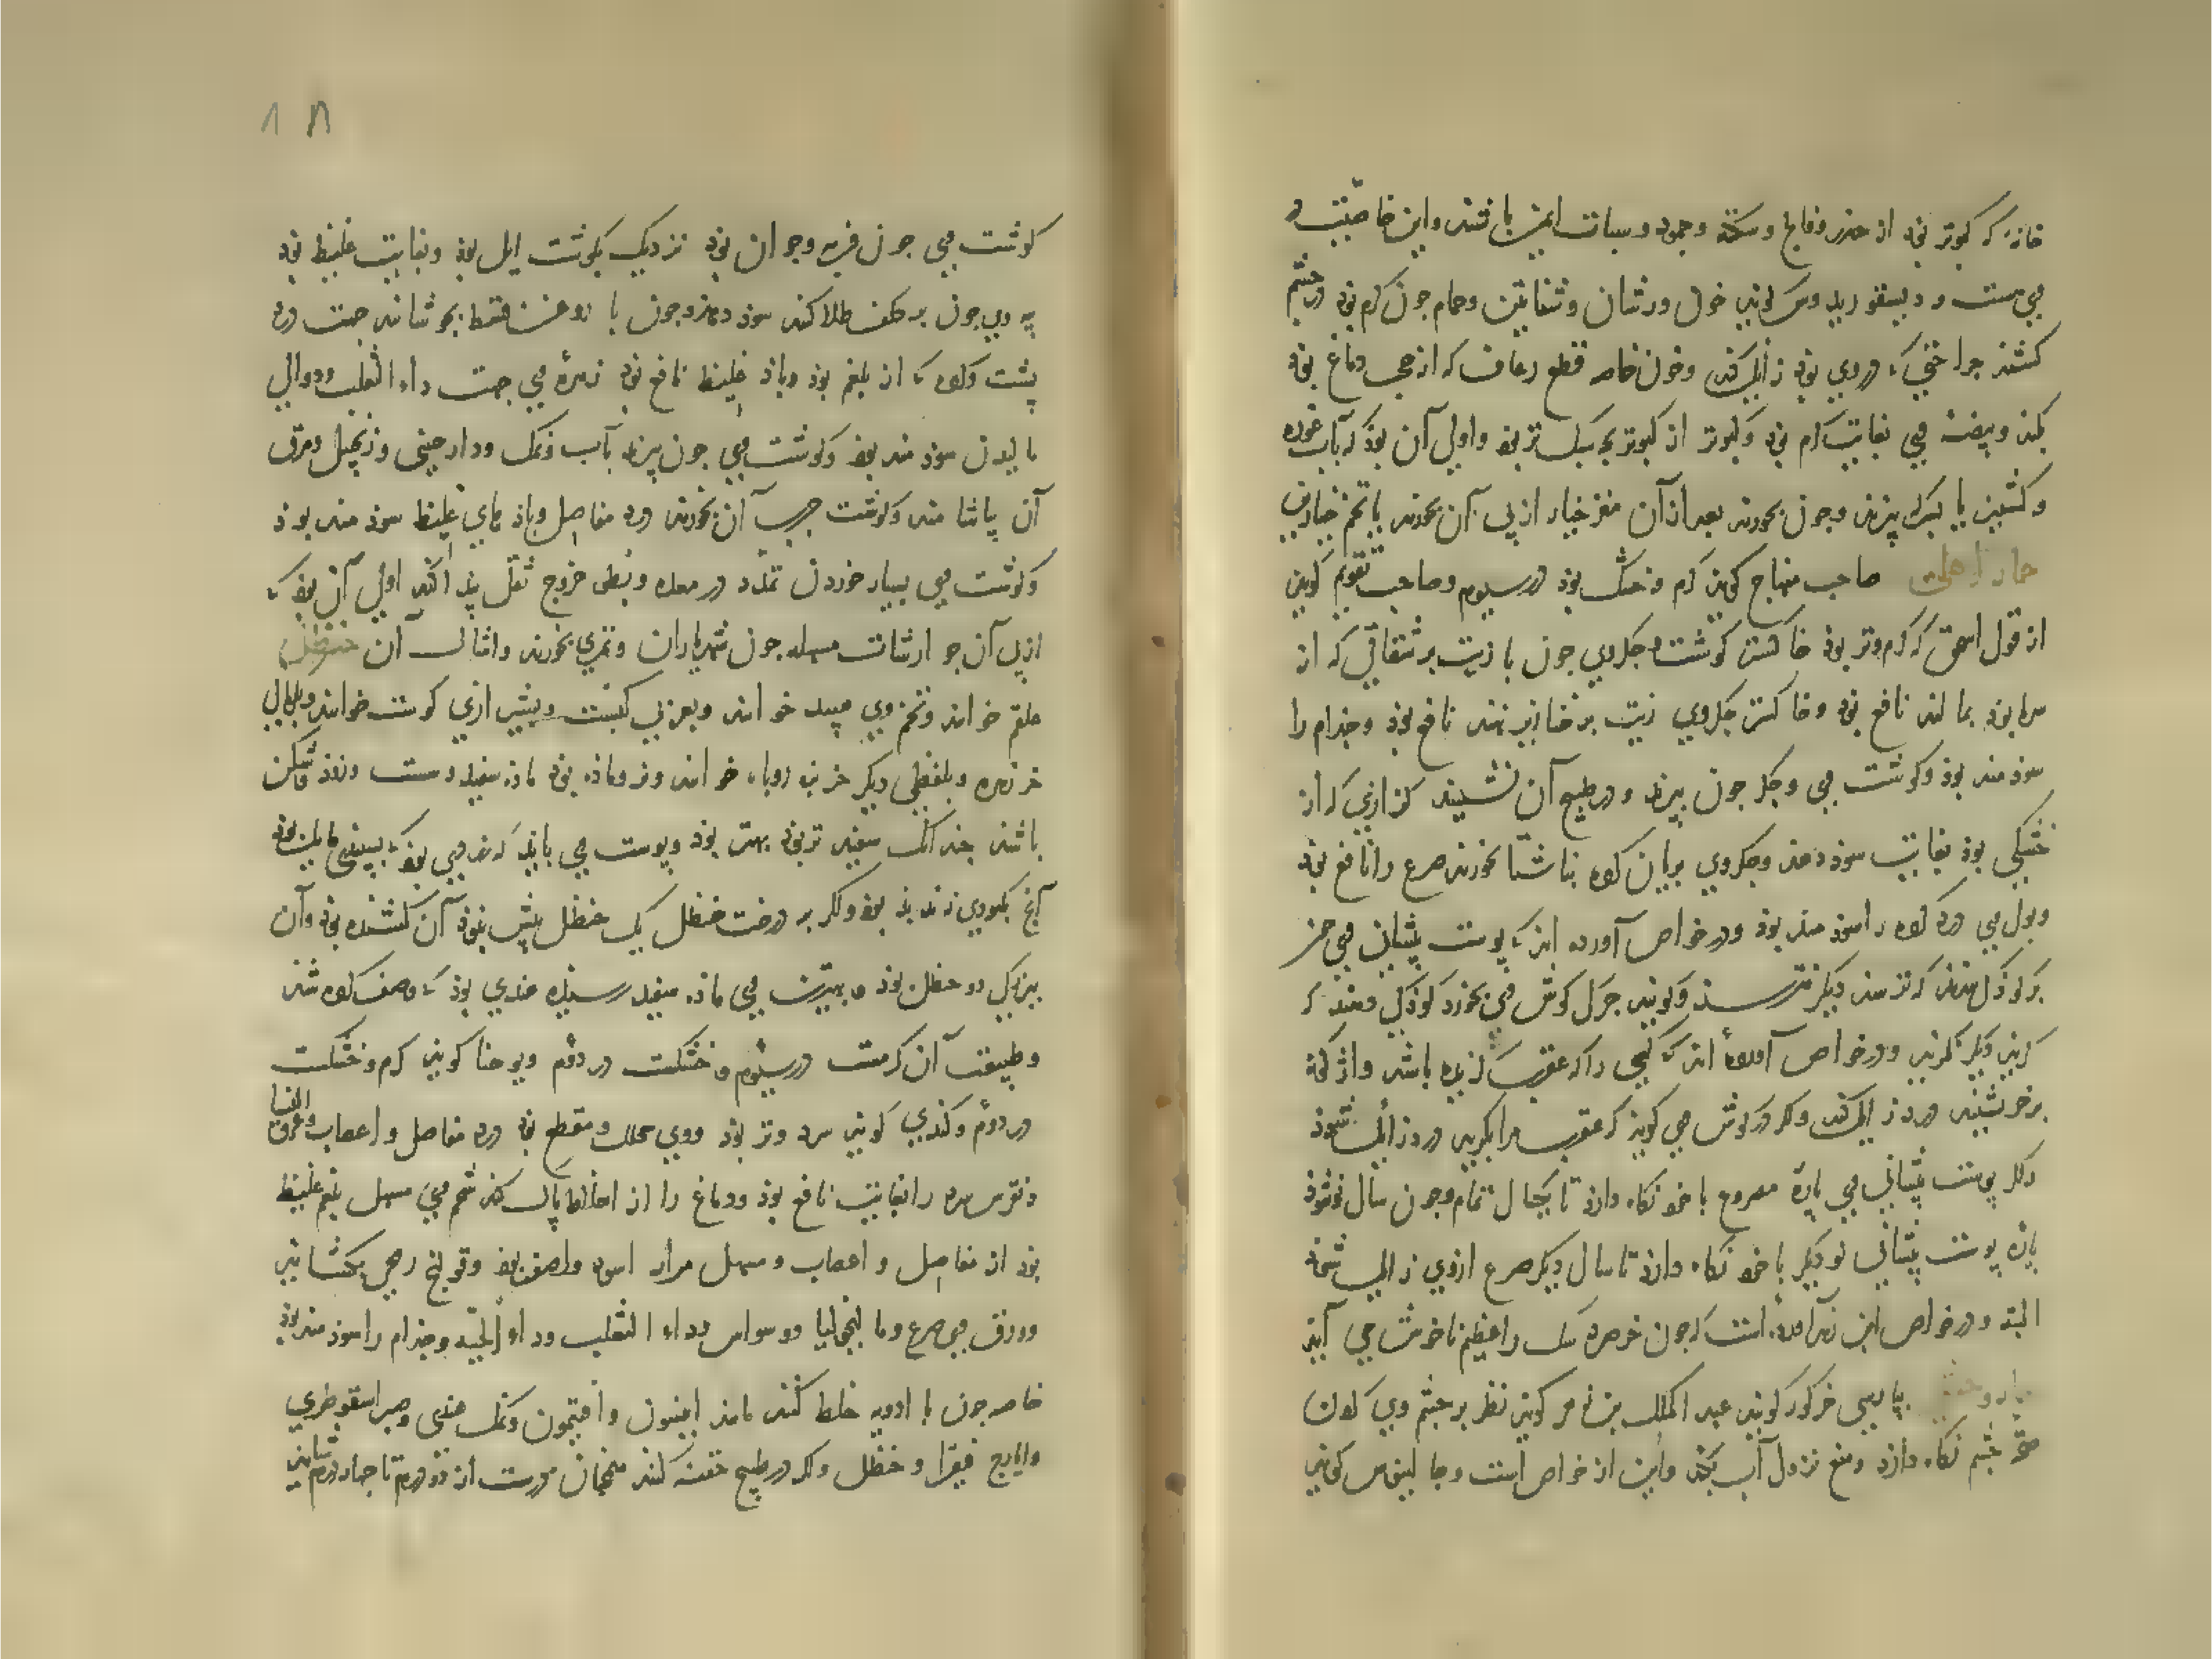 خانه که کبوتر بود از خدر و فالج و سکته و جمود و سبات ایمن باشند و این خاصیتیست در
وی است و دیسقوریدوس گویند خون ورشان و شفانین و حمام چون گرم بود در چشم
کشند جراحتی که در وی بود زایل کند و خون خاصه قطع رعاف که از حجب دماغ بود
بکند و بیضه وی بغایت گرم بود و کبوتر از کبوتر بچه سبک تر بود و اولی آن بود که بآب غوره
و کشنیز یا سرکه بپزند و چون بخورند بعد از آن مغز خیار از پی آن بخورند یا تخم خیارین
حمار اهلی صاحب منهاج گویند گرم و خشک بود در سیوم و صاحب تقویم گویند
از قول اسحق که گرم و تر بود خاکستر گوشت و جگر وی چون با زیت بر شقاقی که از
سرما بود بمالند نافع بود و خاکستر جگر وی زیت بر خنازیر نهند نافع بود و جذام را
سودمند بود و گوشت وی و جگر چون بپزند و در طبیخ آن نشیند کزازی که از
خشکی بود بغایت سود دهد و جگر وی بریان کرده بناشتا بخورند صرع را نافع بود
و بول وی درد گرده را سودمند بود و در خواص آورده اند که پوست پیشانی وی چون
بر کودکی بندند که ترسد دیگر نترسد و گویند چرک گوش وی بخورد کودکی دهند که
گرید دیگر نگرید و در خواص آورده اند که کسی را که عقرب گزیده باشد واژگونه
بر خر نشیند درد زایل کند و اگر در گوش وی گوید که عقرب مرا بگزید درد زایل شود
و اگر پوست پیشانی وی پاره مصروع با خود نگاه دارد تا یکسال تمام و چون سال نو شود
پاره پوست پیشانی نو دیگر با خود نگاه دارد تا سال دیگر صرع از وی زایل شود
البته و در خواص ابن زهر آورده است که چون خر صره سگ را عظیم ناخوش می آید
حمار وحشی بپارسی خرگور گویند عبد الملک بن زهر گویند نظر بر چشم وی کردن
صحة چشم نگاه دارد و منع نزول آب بکند و این از خواص است و جالینوس گویند
گوشت وی چون فربه و جوان بود نزدیک بگوشت ایل بود و بغایت غلیظ بود
پیه وی چون بر کلف طلا کنند سود دهد و چون با روغن قسط بجوشانند جهت درد
پشت و گرده که از بلغم بود و باد غلیظ نافع بود زهره وی جهت داء الثعلب و دوالی
مالیدن سودمند بود و گوشت وی چون بپزند بآب و نمک و دارچینی و زنجبیل و مرق
آن بیاشامند و گوشت چرب آن بخورند درد مفاصل و بادهای غلیظ سودمند بود
و گوشت وی بسیار خوردن تمدد در معده و بطی خروج ثقل پیدا کند اولی آن بود که
از پی آن جوارشات مسهله چون شهریاران و تمری بخورند و امثال آن حنظل
علقم خوانند و تخم وی هبید خوانند و بعربی کبست و بشیرازی کوست خوانند و بلهالی
خرزهره و بلفظی دیگر خربزه روباه خوانند و نر و ماده بود ماده سفید و سست و زود شکن
باشد چندانک سفید تر بود بهتر بود و پوست وی باید که زرد وی بود که بسپیدی مایل بود
آنچ بکبودی زند بد بود و اگر بر درخت حنظل یک حنظل بیش نبود آن کشنده بود و آن
بیز یکی دو حنظل بود و بهترین وی ماده سفید رسیده هندی بود که وصف کرده شد
و طبیعت آن گرمست در سیوم و خشکست در دوم و یوحنا گویند گرم و خشکست
در دوم و کندی گویند سرد و تر بود و وی محلل و مقطع بود درد مفاصل و اعصاب و عرق النسا
و نقرس سرد را بغایت نافع بود و دماغ را از اخلاط پاک کند شحم وی مسهل بلغم غلیظ
بود از مفاصل و اعصاب و مسهل مرار اسود و اصفر بود و قولنج ریحی بگشاید
و ورق وی صرع و مالنجولیا و وسواس و داء الثعلب و داء الحیه و جذام را سودمند بود
خاصه چون با ادویه خلط کنند مانند افیمون و افتیمون و نمک هندی و صبر اسقوطری
و ایارج فیقرا و حنظل و اگر در طبیخ حقنه کنند همچنان درست از دو درم تا چهار درم شاید